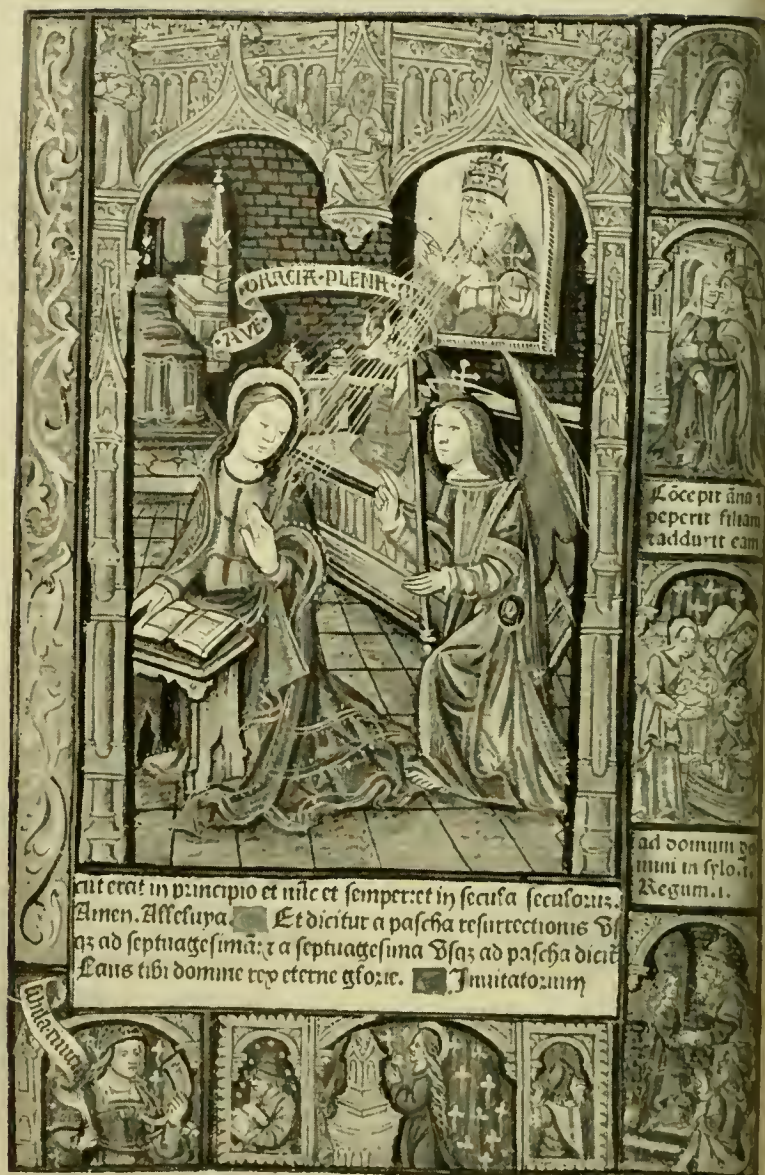 AVE GRACIA PLENA
Cōcepit āna ⁊
peperit filiam
⁊adduxit eam
ad domum do
mini in sylo. i.
Regum. i.
cut erat in principio et nūc et semper: et in secula seculorum.
Amen. Alleluya. Et dicitur a pascha resurrectionis Us
qz ad septuagesimā: ⁊ a septuagesima Usqz ad pascha dicit̄
Laus tibi domine rex eterne glorie. Inuitatorium